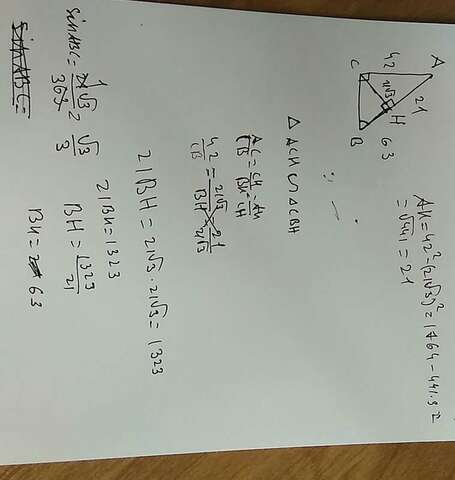 A
42
21
2√3
H
C
63
B
AH = 42² - (21√3)² = 1764 - 441.3 =
= √441 = 21
△ ACH ∽ △ CBH
AC/CB = CH/BH = AH/CH
42/CB = 21√3/BH = 21/21√3
21BH = 21√3 · 21√3 = 1323
21BH = 1323
BH = 1323/21
BH = 63
sinABC = 21√3/63 = √3/3
sinABC =